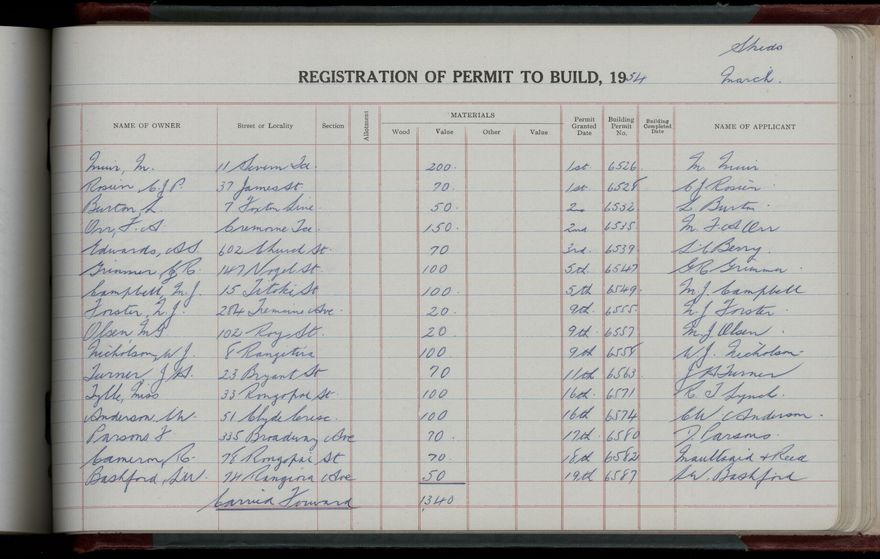 Sheds
REGISTRATION OF PERMIT TO BUILD, 1954 March.
NAME OF OWNER Street or Locality Section Allotment MATERIALS Wood Value Other Value Permit Granted Date Building Permit No. Building Completed Date NAME OF APPLICANT
Muir, M. 11 Severn Tce. 200. 1st. 6526. M. Muir
Rosien C J P. 37 James St 70. 1st. 6528 C J Rosien
Burton, L. 7 Foxton Line 50. 2nd 6532 L Burton
Orr, F. A. Cremorne Tce. 150. 2nd 6535 M. F. A Orr
Edwards, 602 Church St. 70 3rd. 6539 Berry
Grimmer, G R. 147 Vogel St 100 5th 6547 G R Grimmer
Campbell, M. J. 15 Titoki St 100. 5th 6549. M J. Campbell
Forster, L. J. 254 Tremaine Ave. 20. 9th. 6555. L J Forster
Olsen M J 102 Roy St. 20 9th 6557 M J Olsen
Nicholson, W J. 8 Rangitira 100 9th 6558 W J. Nicholson
Turner, J H. 23 Bryant St 70 11th 6563 J H Turner
Miss 33 Rongopai St 100 16th. 6571 R. J Lynch.
Anderson, C W. 51 Clyde Cresc. 100 16th 6574 C W Anderson.
Parsons F 335 Broadway Ave 70. 17th 6580 Parsons.
Cameron, R. 78 Rongopai St 70. 18th 6582 & Reed
Bashford, S W. 74 Rangiora Ave 50 19th 6587 S W. Bashford
Carried Forward 1340